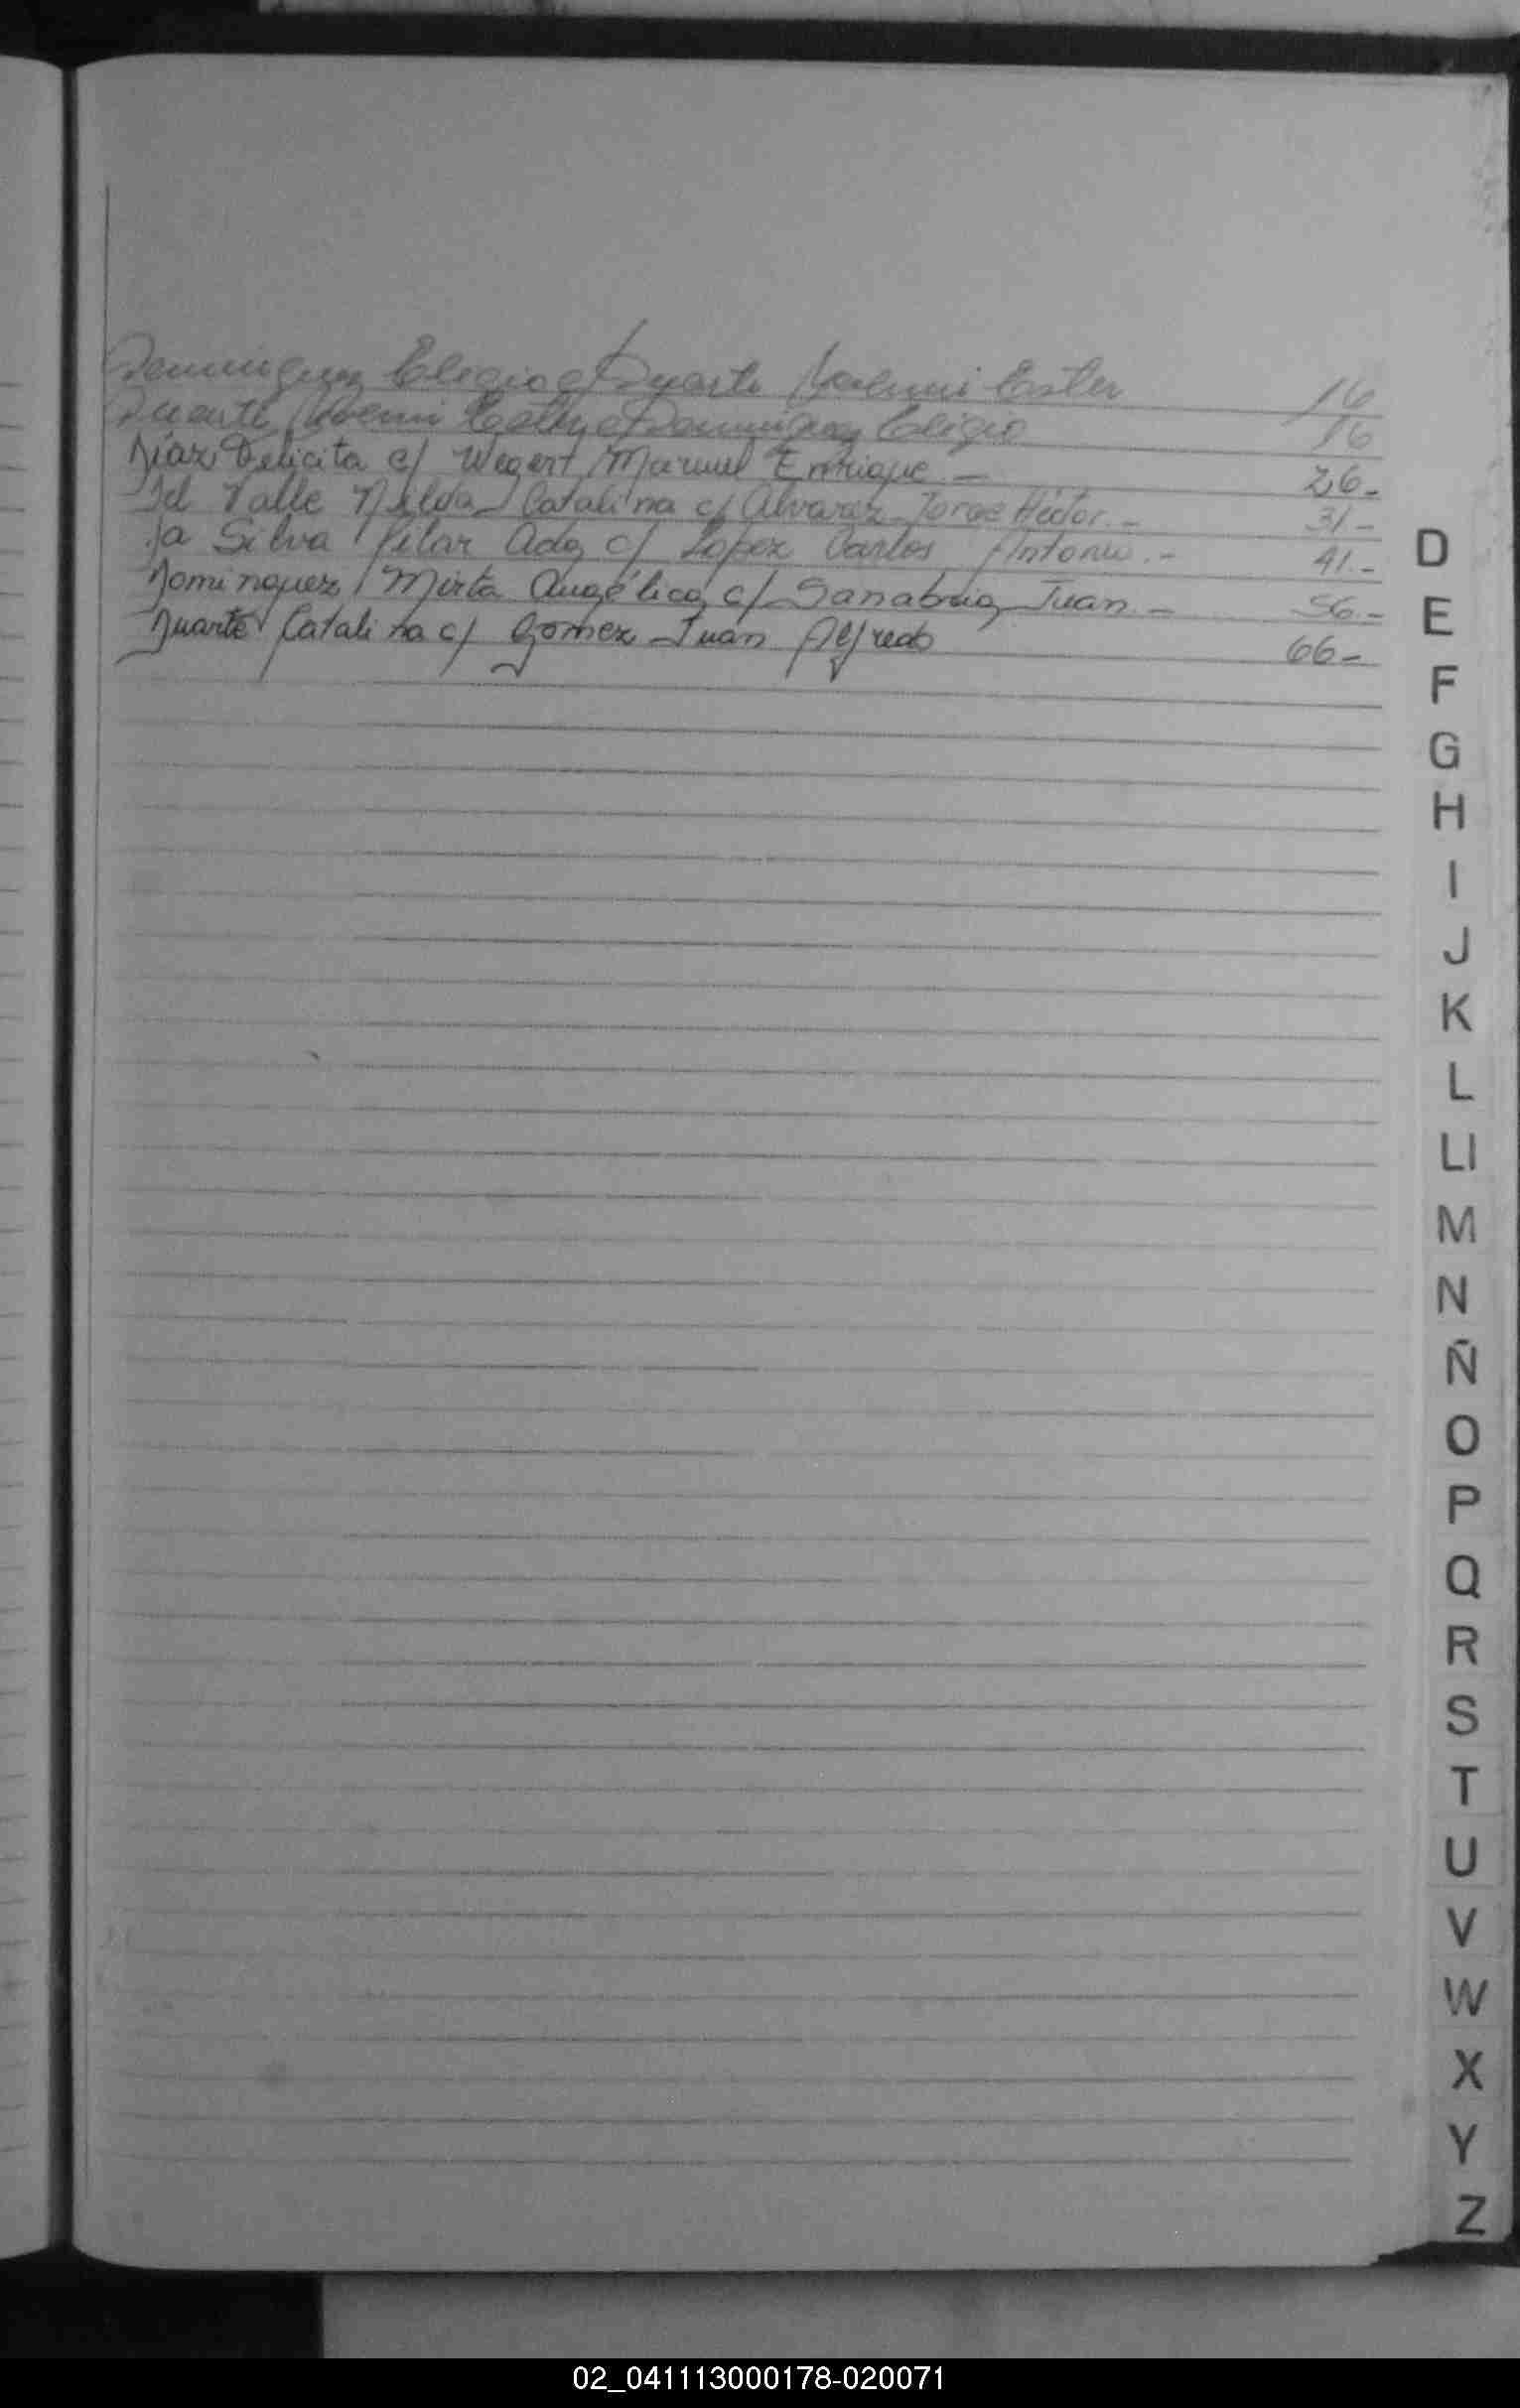 Dominguez Eligio c/ Duarte Noemi Ester 16
Duarte Noemi Esther c/ Dominguez Eligio 16
Diaz Delicita c/ Wegert Manuel Enrique.- 26-
Del Valle Nilda Catalina c/ Alvarez Jorge Héctor.- 31-
Da Silva Pilar Ada c/ Lopez Carlos Antonio.- 41.-
Dominguez Mirta Angélica c/ Sanabria Juan.- 56.-
Duarte Catalina c/ Gomez Juan Alfredo 66-
D
E
F
G
H
I
J
K
L
Ll
M
N
Ñ
O
P
Q
R
S
T
U
V
W
X
Y
Z
02_041113000178-020071